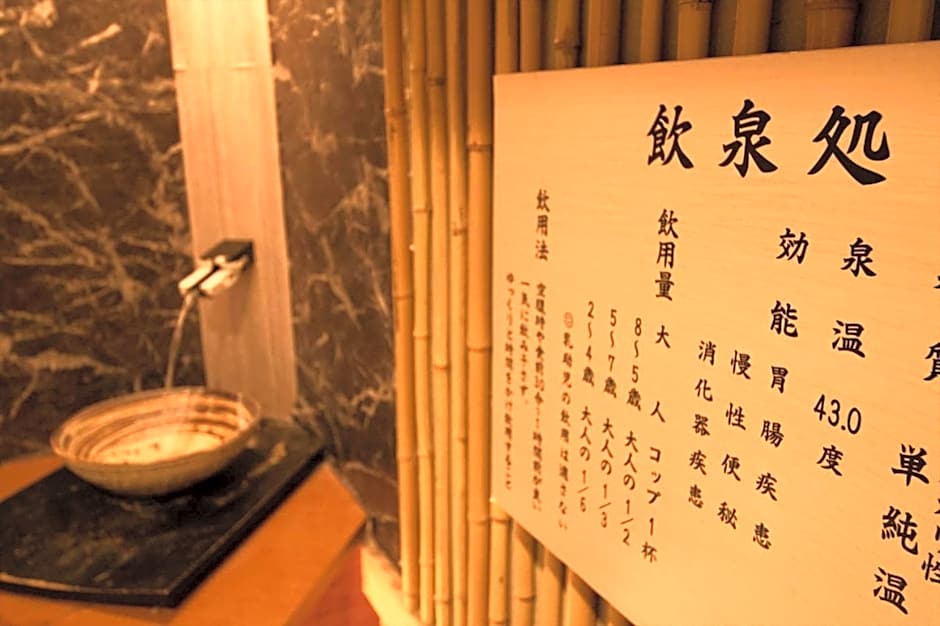 飲泉処
質 単純温
性
泉温 43.0度
効能 胃腸疾患
慢性便秘
消化器疾患
飲用量 大人 コップ1杯
8～5歳 大人の1/2
5～7歳 大人の1/3
2～4歳 大人の1/6
◎乳幼児の飲用は適さない
飲用法
空腹時や食前30分～1時間前が良い
一気に飲み干さず、
ゆっくりと時間をかけ飲用すること